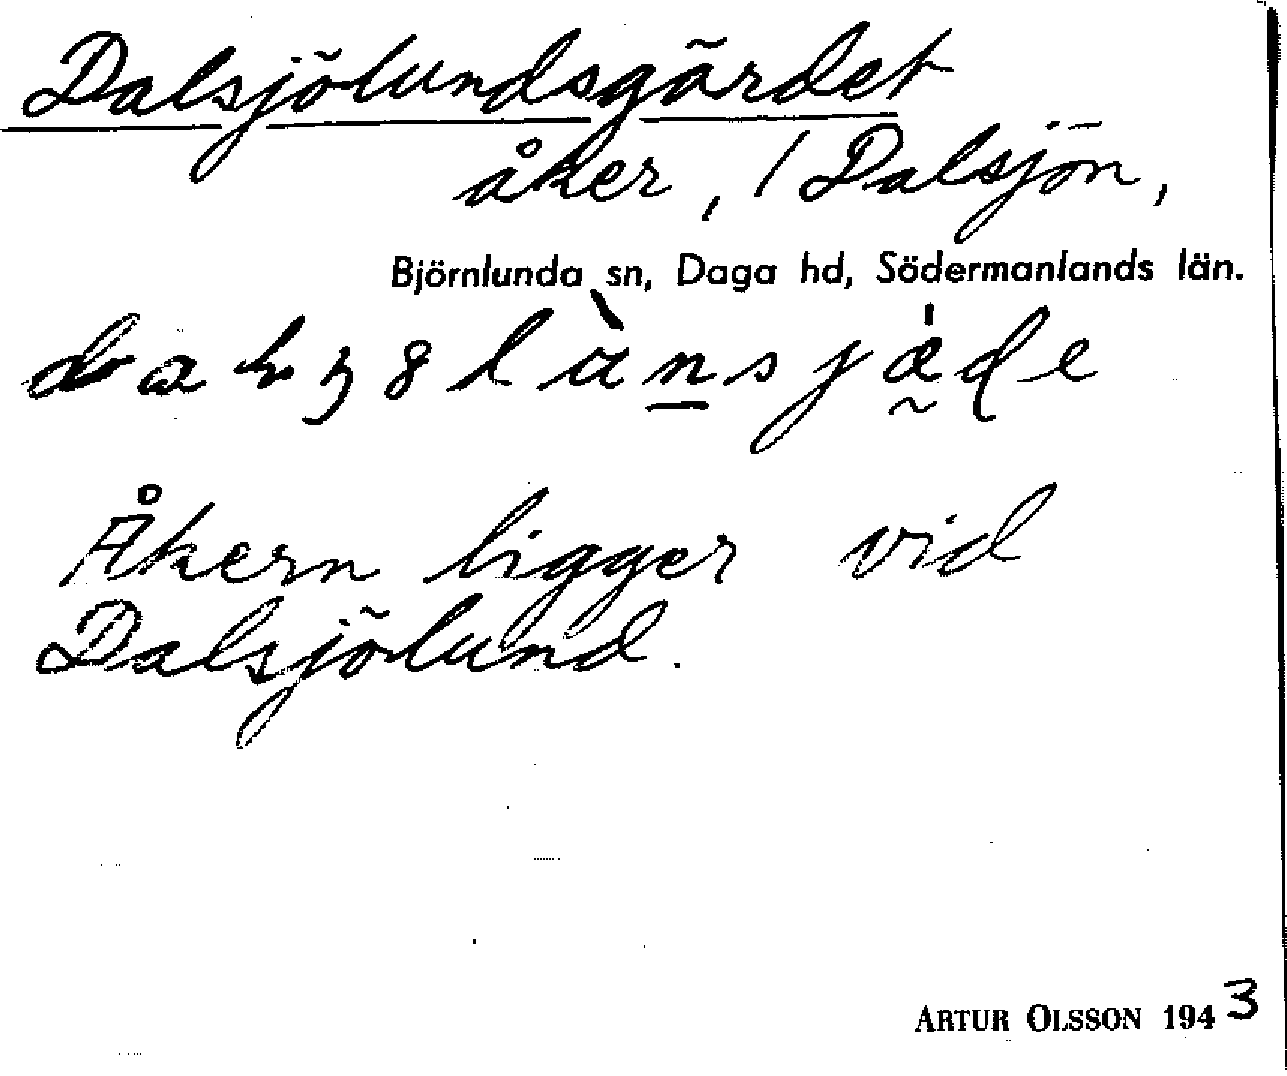 Dalsjölundsgärdet
åker, / Dalsjön,
Björnlunda sn, Daga hd, Södermanlands län.
Åkern ligger vid
Dalsjölund.
ARTUR OLSSON 1943